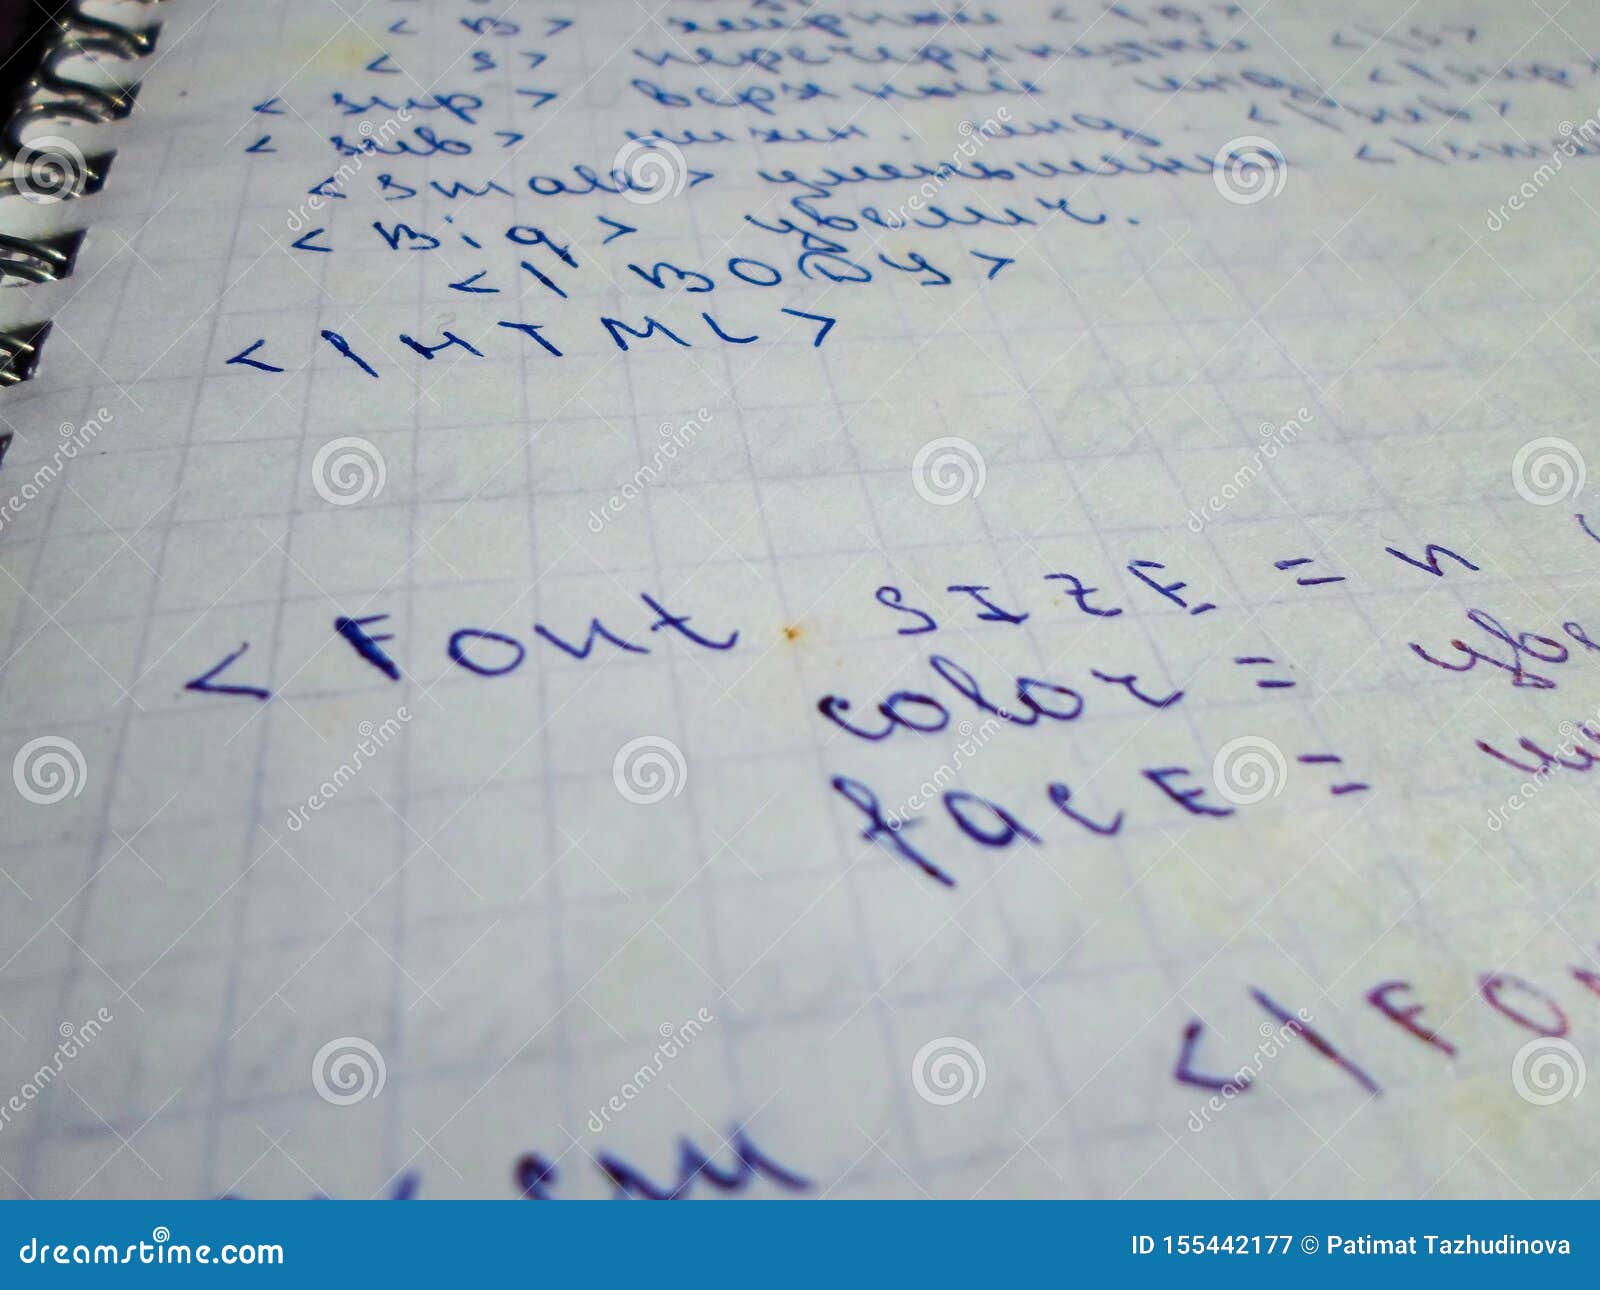 <B> жирный </B>
<s> перечеркнутый </s>
<sup> верхний инд </sup>
<sub> нижн. инд. </sub>
<small> уменьшение </small
<Big> увелич.
</BODY>
</HTML>
<Font SIZE = n
color =
face =
</FO
dreamstime.com
ID 155442177 © Patimat Tazhudinova